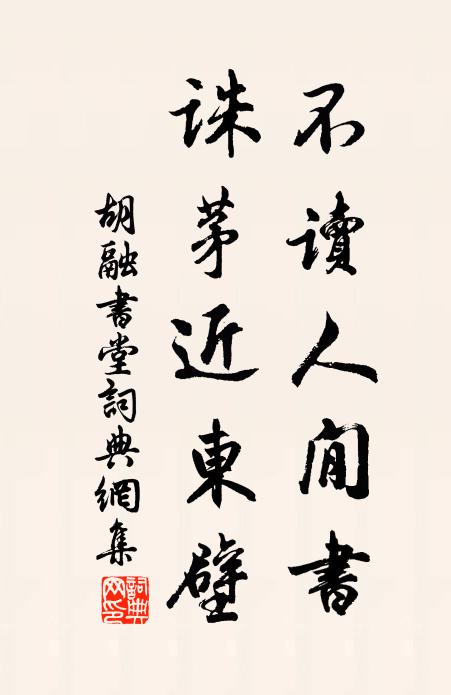 不讀人間書
誅茅近東壁
胡融書堂詞典網集
詞典網印